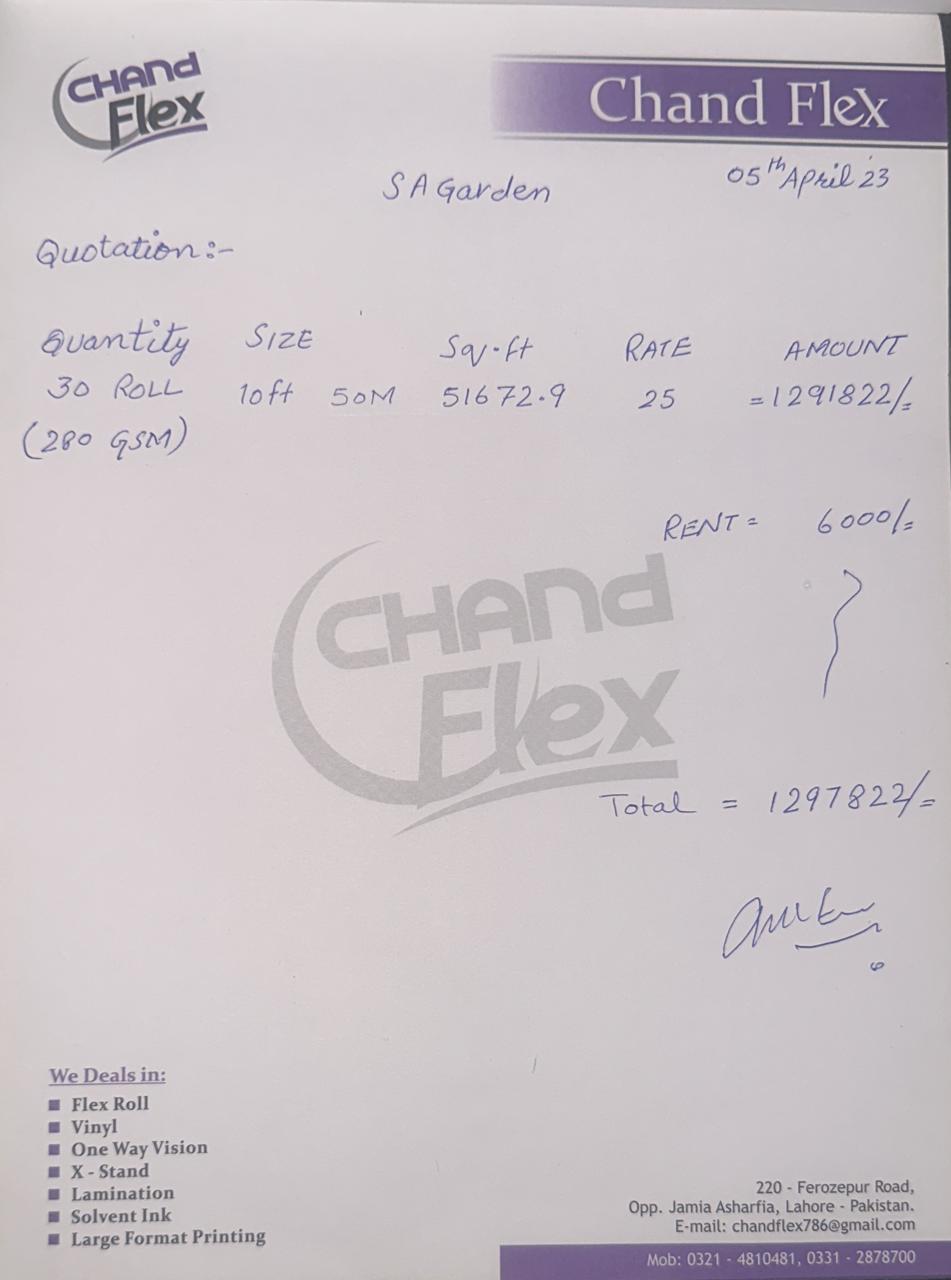 CHAND
Flex
Chand Flex
S A Garden
05th April 23
Quotation:-
Quantity SIZE Sq.ft RATE AMOUNT
30 ROLL 10ft 50M 51672.9 25 =1291822/=
(280 GSM)
RENT = 6000/=
CHAND
Flex
Total = 1297822/=
We Deals in:
Flex Roll
Vinyl
One Way Vision
X - Stand
Lamination
Solvent Ink
Large Format Printing
220 - Ferozepur Road,
Opp. Jamia Asharfia, Lahore - Pakistan.
E-mail: chandflex786@gmail.com
Mob: 0321 - 4810481, 0331 - 2878700